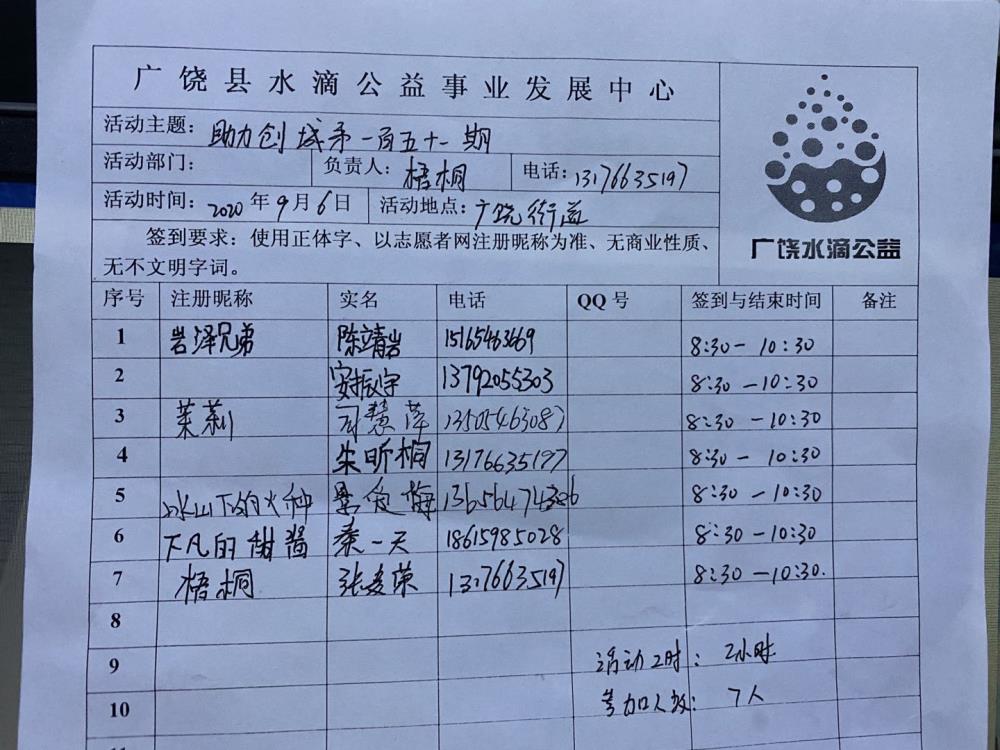 广饶县水滴公益事业发展中心
活动主题：助力创城第一百五十一期
活动部门： 负责人：梧桐 电话：13176635197
活动时间：2020年9月6日 活动地点：广饶街道
签到要求：使用正体字、以志愿者网注册昵称为准、无商业性质、
无不文明字词。
广饶水滴公益
序号 注册昵称 实名 电话 QQ号 签到与结束时间 备注
1 岩泽兄弟 陈靖岩 15165463669 8:30-10:30
2 安振宇 13792055303 8:30-10:30
3 茉莉 司慧萍 13505463087 8:30-10:30
4 朱昕桐 13176635197 8:30-10:30
5 冰山下的火种 爱梅 8:30-10:30
6 下凡的甜酱 秦一天 18615985028 8:30-10:30
7 梧桐 张凌荣 13176635197 8:30-10:30.
8
9 活动工时：2小时
10 参加人数：7人